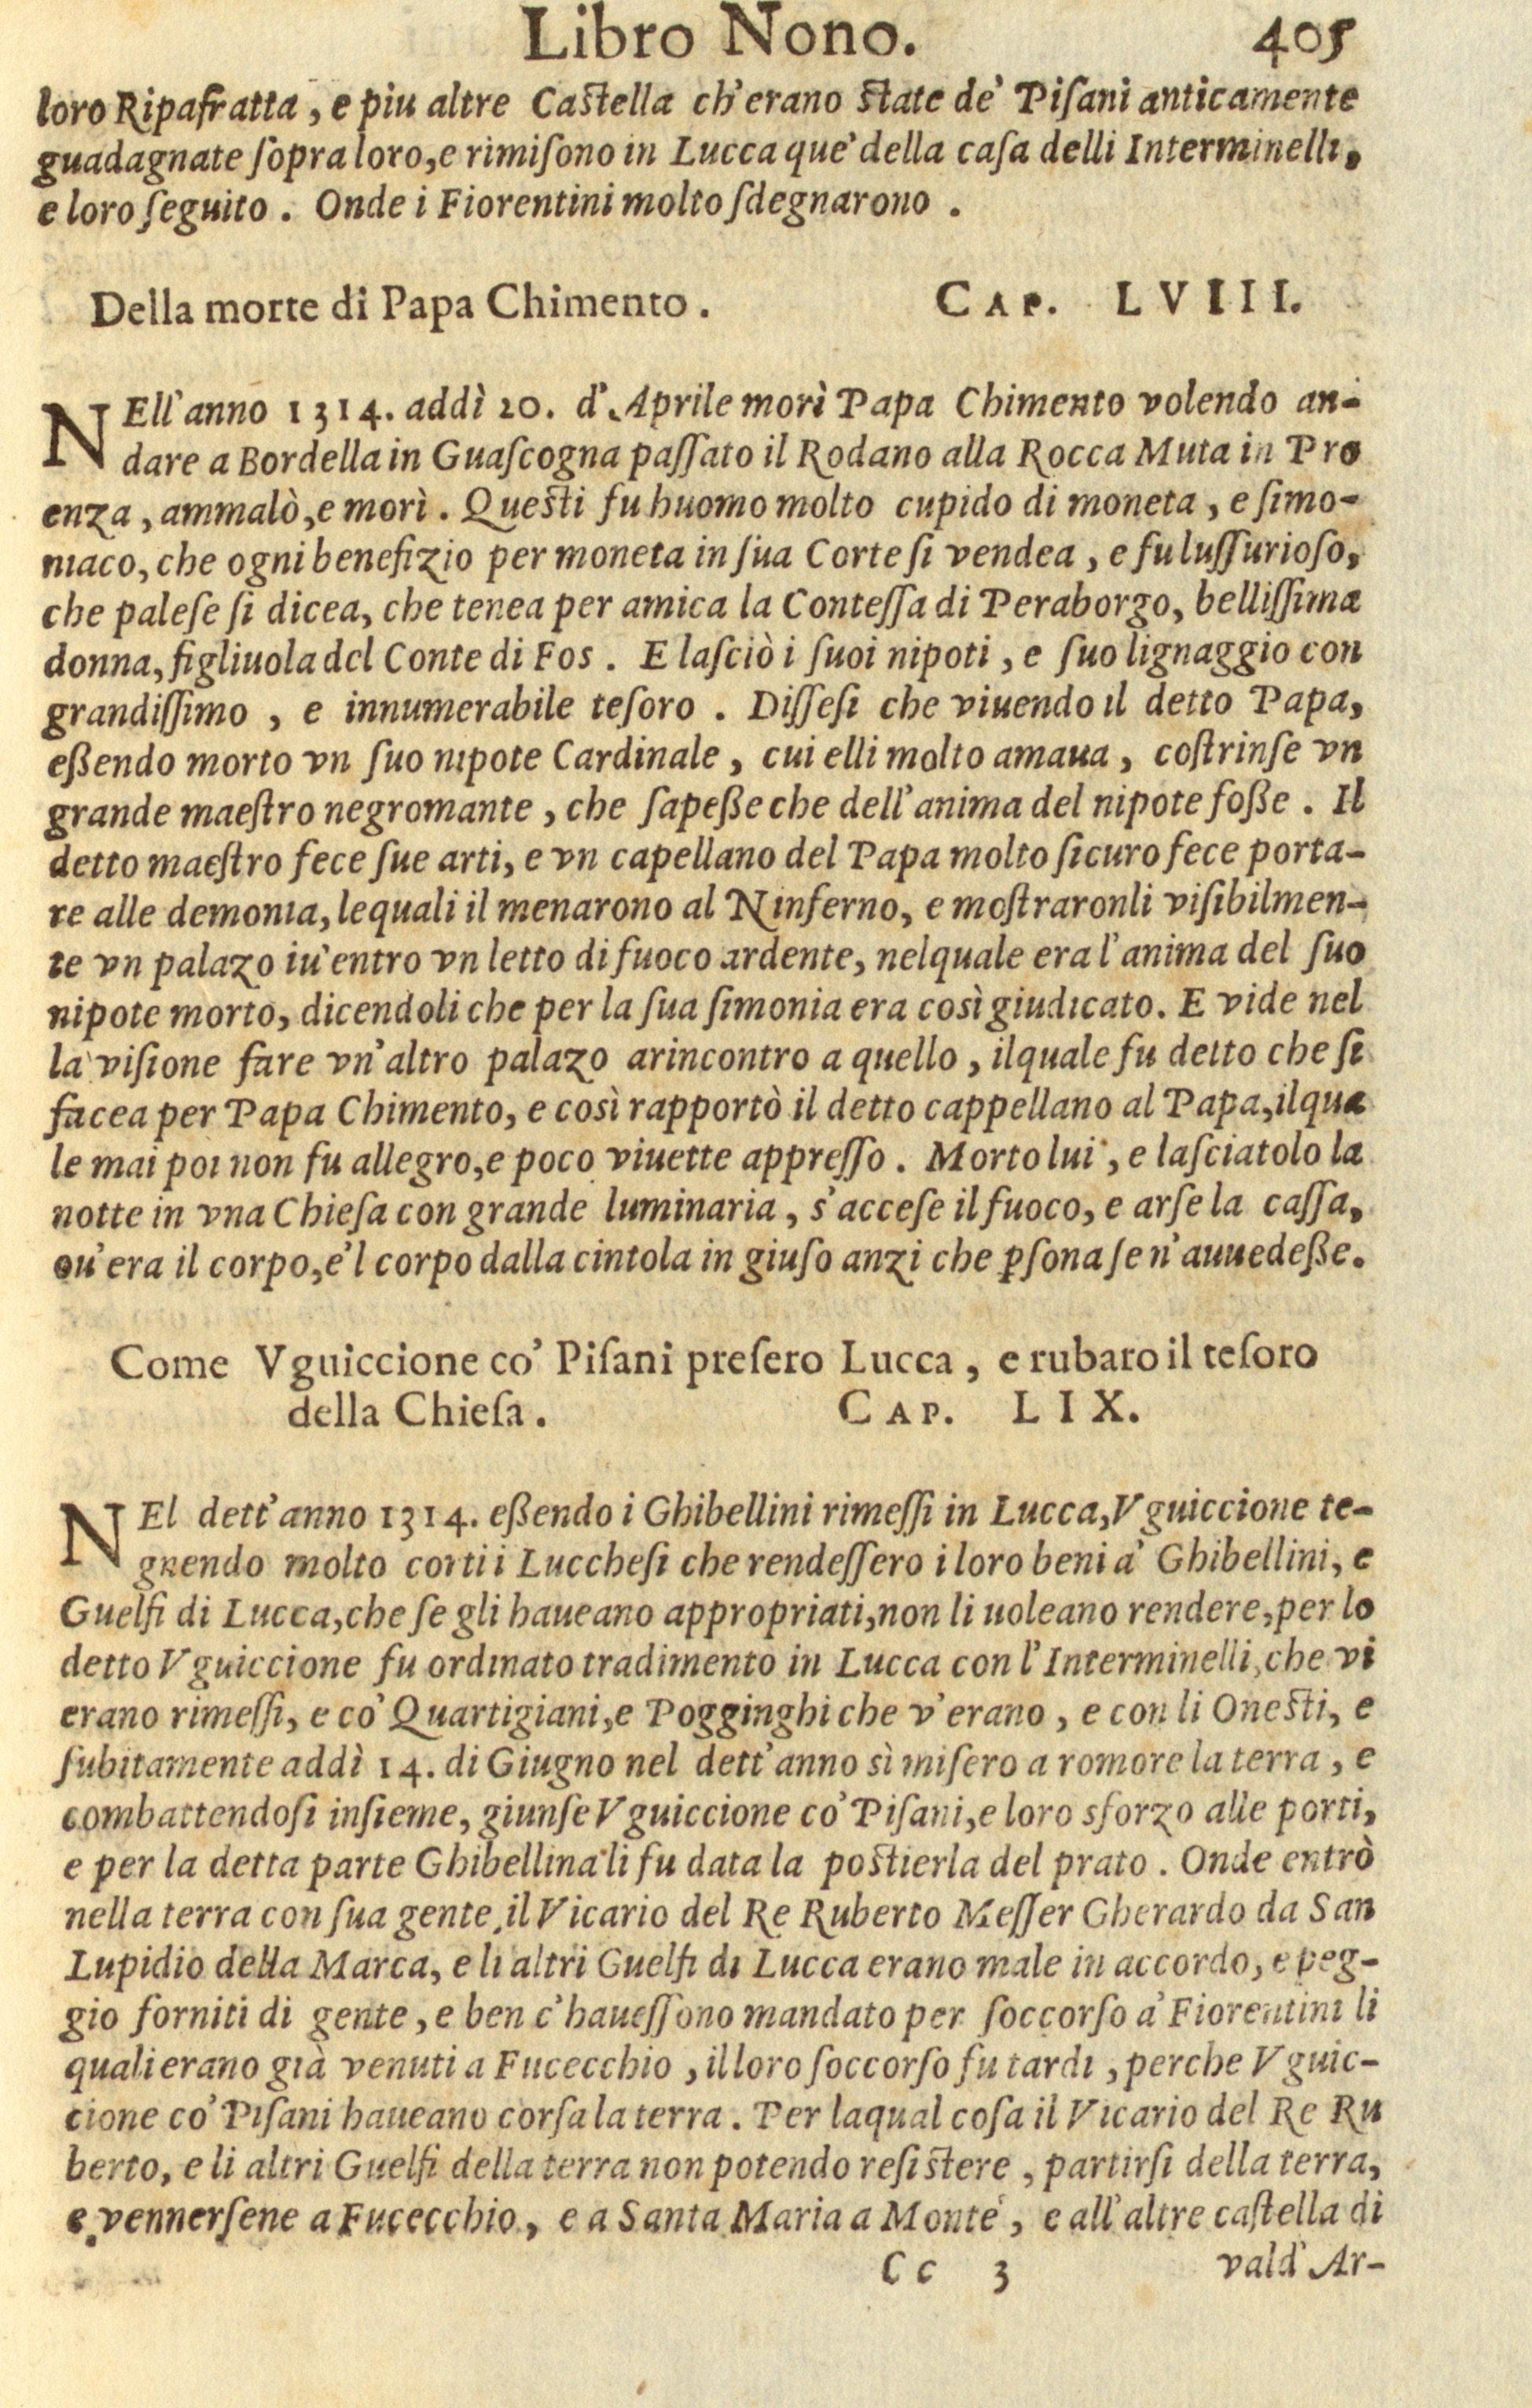 Libro Nono. 405
loro Ripafratta, e piu altre Castella ch'erano state de' Pisani anticamente
guadagnate ſopra loro, e rimiſono in Lucca que' della caſa delli Interminelli,
e loro ſeguito. Onde i Fiorentini molto ſdegnarono.
Della morte di Papa Chimento. CAP. LVIII.
NEll'anno 1314. addì 20. d'Aprile morì Papa Chimento volendo an-
dare a Bordella in Guaſcogna paſſato il Rodano alla Rocca Muta in Pro
enza, ammalò, e morì. Questi fu huomo molto cupido di moneta, e ſimo-
niaco, che ogni benefizio per moneta in ſua Corte ſi vendea, e fu luſſurioſo,
che paleſe ſi dicea, che tenea per amica la Conteſſa di Peraborgo, belliſſima
donna, figliuola del Conte di Fos. E laſciò i ſuoi nipoti, e ſuo lignaggio con
grandiſſimo, e innumerabile teſoro. Diſſeſi che viuendo il detto Papa,
eßendo morto vn ſuo nipote Cardinale, cui elli molto amaua, coſtrinſe vn
grande maeſtro negromante, che ſapeße che dell'anima del nipote foße. Il
detto maeſtro fece ſue arti, e vn capellano del Papa molto ſicuro fece porta-
re alle demonia, lequali il menarono al Ninferno, e moſtraronli viſibilmen-
te vn palazo iu'entro vn letto di fuoco ardente, nelquale era l'anima del ſuo
nipote morto, dicendoli che per la ſua ſimonia era così giudicato. E vide nel
la viſione fare vn'altro palazo arincontro a quello, ilquale fu detto che ſi
facea per Papa Chimento, e così rapportò il detto cappellano al Papa, ilqua
le mai poi non fu allegro, e poco viuette appreſſo. Morto lui, e laſciatolo la
notte in vna Chieſa con grande luminaria, s'acceſe il fuoco, e arſe la caſſa,
ou'era il corpo, e'l corpo dalla cintola in giuſo anzi che ꝑſona ſe n'auuedeße.
Come Vguiccione co' Piſani preſero Lucca, e rubaro il teſoro
della Chieſa. CAP. LIX.
NEl dett'anno 1314. eßendo i Ghibellini rimeſſi in Lucca, Vguiccione te-
gnendo molto corti i Luccheſi che rendeſſero i loro beni a' Ghibellini, e
Guelfi di Lucca, che ſe gli haueano appropriati, non li uoleano rendere, per lo
detto Vguiccione fu ordinato tradimento in Lucca con l'Interminelli, che vi
erano rimeſſi, e co' Quartigiani, e Pogginghi che v'erano, e con li Onesti, e
ſubitamente addì 14. di Giugno nel dett'anno sì miſero a romore la terra, e
combattendoſi inſieme, giunſe Vguiccione co' Piſani, e loro sforzo alle porti,
e per la detta parte Ghibellina li fu data la postierla del prato. Onde entrò
nella terra con ſua gente, il Vicario del Re Ruberto Meſſer Gherardo da San
Lupidio della Marca, e li altri Guelfi di Lucca erano male in accordo, e peg-
gio forniti di gente, e ben c'haueſſono mandato per ſoccorſo a' Fiorentini li
quali erano già venuti a Fucecchio, il loro ſoccorſo fu tardi, perche Vguic-
cione co' Piſani haueano corſa la terra. Per laqual coſa il Vicario del Re Ru
berto, e li altri Guelfi della terra non potendo reſistere, partirſi della terra,
e vennerſene a Fucecchio, e a Santa Maria a Monte, e all'altre caſtella di
Cc 3 vald'Ar-